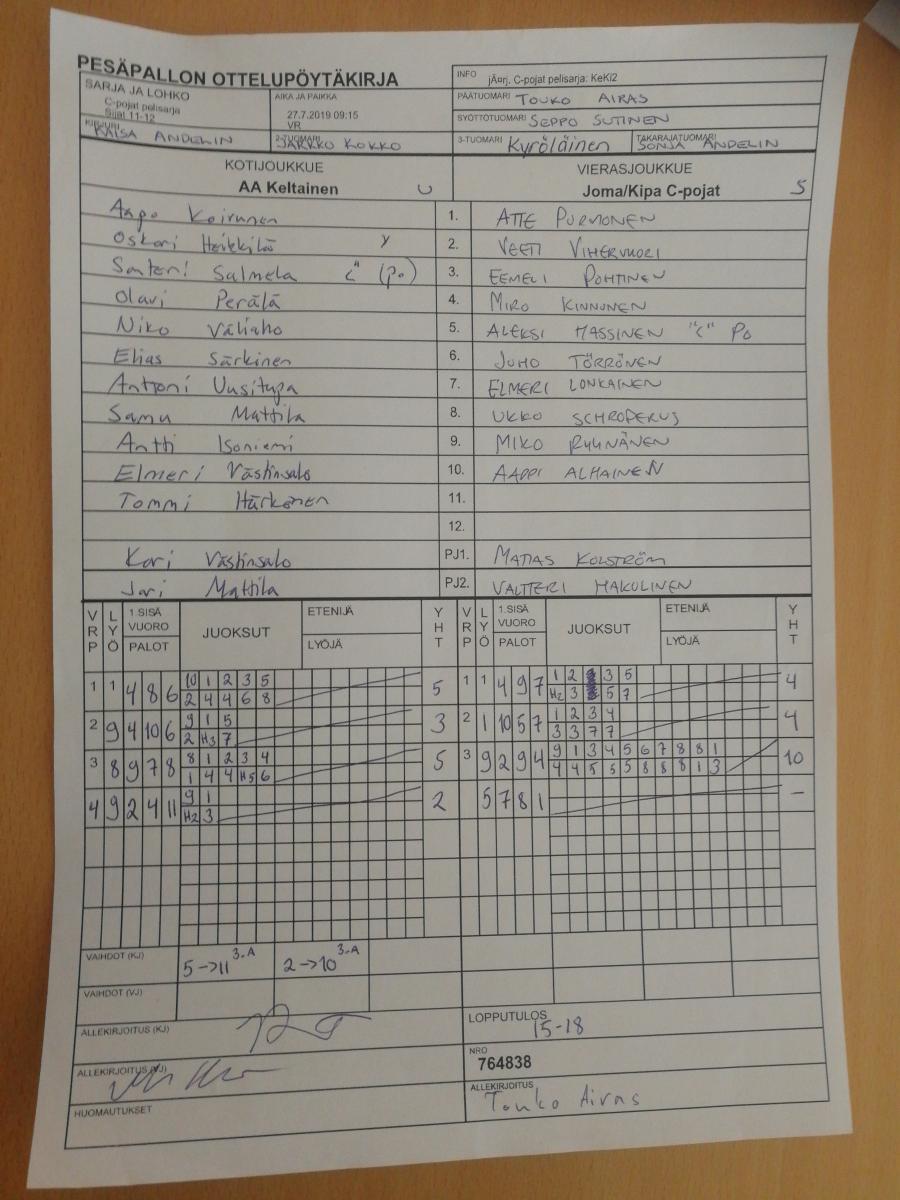 PESÄPALLON OTTELUPÖYTÄKIRJA
INFO jÃ¤rj. C-pojat pelisarja: KeKi2
SARJA JA LOHKO
C-pojat pelisarja
Sijat 11-12
AIKA JA PAIKKA
27.7.2019 09:15
VR
PÄÄTUOMARI TOUKO AIRAS
SYÖTTÖTUOMARI SEPPO SUTINEN
KIRJURI KAISA ANDELIN
2-TUOMARI JARKKO KOKKO
3-TUOMARI Kyröläinen
TAKARAJATUOMARI SONJA ANDELIN
KOTIJOUKKUE
AA Keltainen U
VIERASJOUKKUE
Joma/Kipa C-pojat S
Aapo Keirunen 1. ATTE PURMONEN
Oskari Heikkilä y 2. VEETI VIHERVUORI
Santeri Salmela "c" (po) 3. EEMELI POHTINEN
Olavi Perälä 4. MIRO KINNUNEN
Niko Väliaho 5. ALEKSI MASSINEN "C" PO
Elias Särkinen 6. JUHO TÖRRÖNEN
Anttoni Uusitupa 7. ELMERI LONKAINEN
Samu Mattila 8. UKKO SCHRODERUS
Antti Isoniemi 9. MIKO RYYNÄNEN
Elmeri Västinsalo 10. AAPPI ALHAINEN
Tommi Härkönen 11.
12.
Kari Västinsalo PJ1. MATIAS KOLSTRÖM
Jari Mattila PJ2. VALTTERI HAKULINEN
VRP LYÖ 1.SISÄ VUORO PALOT JUOKSUT ETENIJÄ LYÖJÄ YHT VRP LYÖ 1.SISÄ VUORO PALOT JUOKSUT ETENIJÄ LYÖJÄ YHT
1 1 4 8 6 10 1 2 3 5 5 1 1 4 9 7 1 2 3 5 4
2 4 4 6 8 H2 3 5 7
2 9 4 10 6 9 1 5 3 2 1 10 5 7 1 2 3 4 4
2 H3 7 3 3 7 7
3 8 9 7 8 8 1 2 3 4 5 3 9 2 9 4 9 1 3 4 5 6 7 8 8 1 10
1 4 4 H5 6 4 4 5 5 5 8 8 8 1 3
4 9 2 4 11 9 1 2 5 7 8 1 -
H2 3
VAIHDOT (KJ) 5->11 3.A 2->10 3.A
VAIHDOT (VJ)
ALLEKIRJOITUS (KJ)
LOPPUTULOS 15-18
ALLEKIRJOITUS (VJ)
NRO
764838
HUOMAUTUKSET
ALLEKIRJOITUS
Touko Airas